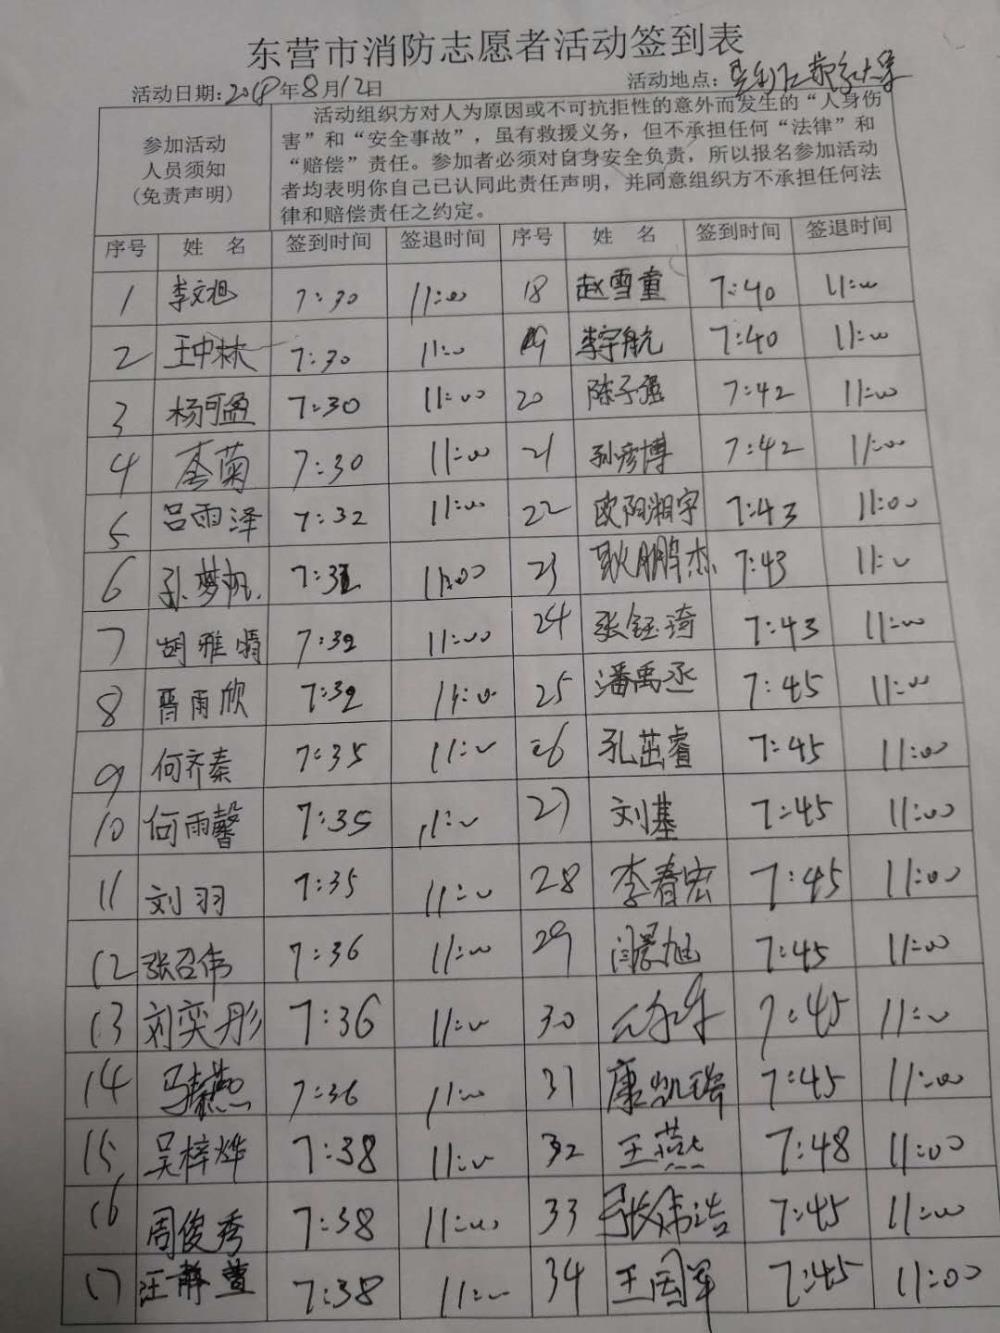 东营市消防志愿者活动签到表
活动日期:2018年8月12日 活动地点:
参加活动
人员须知
(免责声明)
活动组织方对人为原因或不可抗拒性的意外而发生的“人身伤
害”和“安全事故”,虽有救援义务,但不承担任何“法律”和
“赔偿”责任。参加者必须对自身安全负责,所以报名参加活动
者均表明你自己已认同此责任声明,并同意组织方不承担任何法
律和赔偿责任之约定。
序号 姓 名 签到时间 签退时间 序号 姓 名 签到时间 签退时间
1 李文旭 7:30 11:00 18 赵雪童 7:40 11:00
2 王中林 7:30 11:00 19 李宇航 7:40 11:00
3 杨可盈 7:30 11:00 20 陈子强 7:42 11:00
4 李菊 7:30 11:00 21 孙彦博 7:42 11:00
5 吕雨泽 7:32 11:00 22 欧阳湘宇 7:43 11:00
6 孙梦帆 7:32 11:00 23 耿鹏杰 7:43 11:00
7 胡雅娟 7:32 11:00 24 张钰琦 7:43 11:00
8 胥雨欣 7:32 11:00 25 潘禹丞 7:45 11:00
9 何齐秦 7:35 11:00 26 孔茁睿 7:45 11:00
10 何雨馨 7:35 11:00 27 刘基 7:45 11:00
11 刘羽 7:35 11:00 28 李春宏 7:45 11:00
12 张召伟 7:36 11:00 29 7:45 11:00
13 刘奕彤 7:36 11:00 30 7:45 11:00
14 7:36 11:00 31 康凯瑞 7:45 11:00
15 吴梓烨 7:38 11:00 32 王燕 7:48 11:00
16 周俊秀 7:38 11:00 33 张伟浩 7:45 11:00
17 汪静萱 7:38 11:00 34 王国军 7:45 11:00